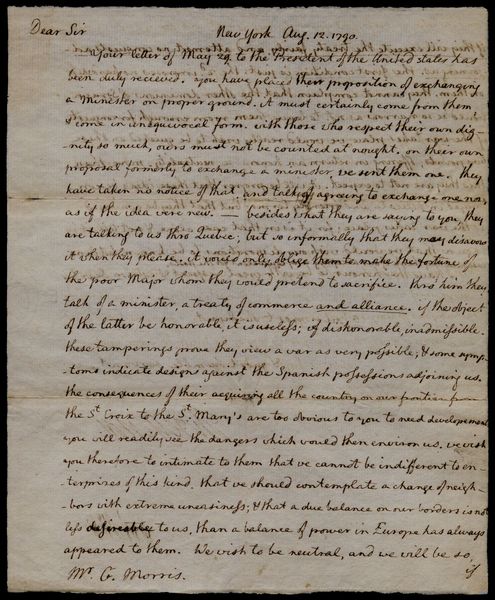 Dear Sir New York Aug. 12. 1790.
Your letter of May 29. to the President of the United States has
been duly recieved. you have placed their proposition of exchanging
a Minister on proper ground. it must certainly come from them
& come in unequivocal form. with those who respect their own dig-
-nity so much, ours must not be counted at nought. on their own
proposal formerly to exchange a minister, we sent them one. they
have taken no notice of that, and talk of agreeing to exchange one now,
as if the idea were new. — besides what they are saying to you, they
are talking to us thro Quebec, but so informally that they may disavow
it when they please. it would only oblige them to make the fortune of
the poor Major whom they would pretend to sacrifice. thro' him they
talk of a minister, a treaty of commerce and alliance. if the object
of the latter be honorable, it is useless; if dishonorable, inadmissible.
these tamperings prove they view a war as very possible; & some symp-
toms indicate designs against the Spanish possessions adjoining us.
the consequences of their acquiring all the country on our frontier from
the St. Croix to the St. Mary's are too obvious to you to need developement.
you will readily see the dangers which would then environ us. we wish
you therefore to intimate to them that we cannot be indifferent to en-
terprizes of this kind, that we should contemplate a change of neigh-
bors with extreme uneasiness; & that a due balance on our borders is not
less desireable to us, than a balance of power in Europe has always
appeared to them. We wish to be neutral, and we will be so,
Mr. G. Morris. if